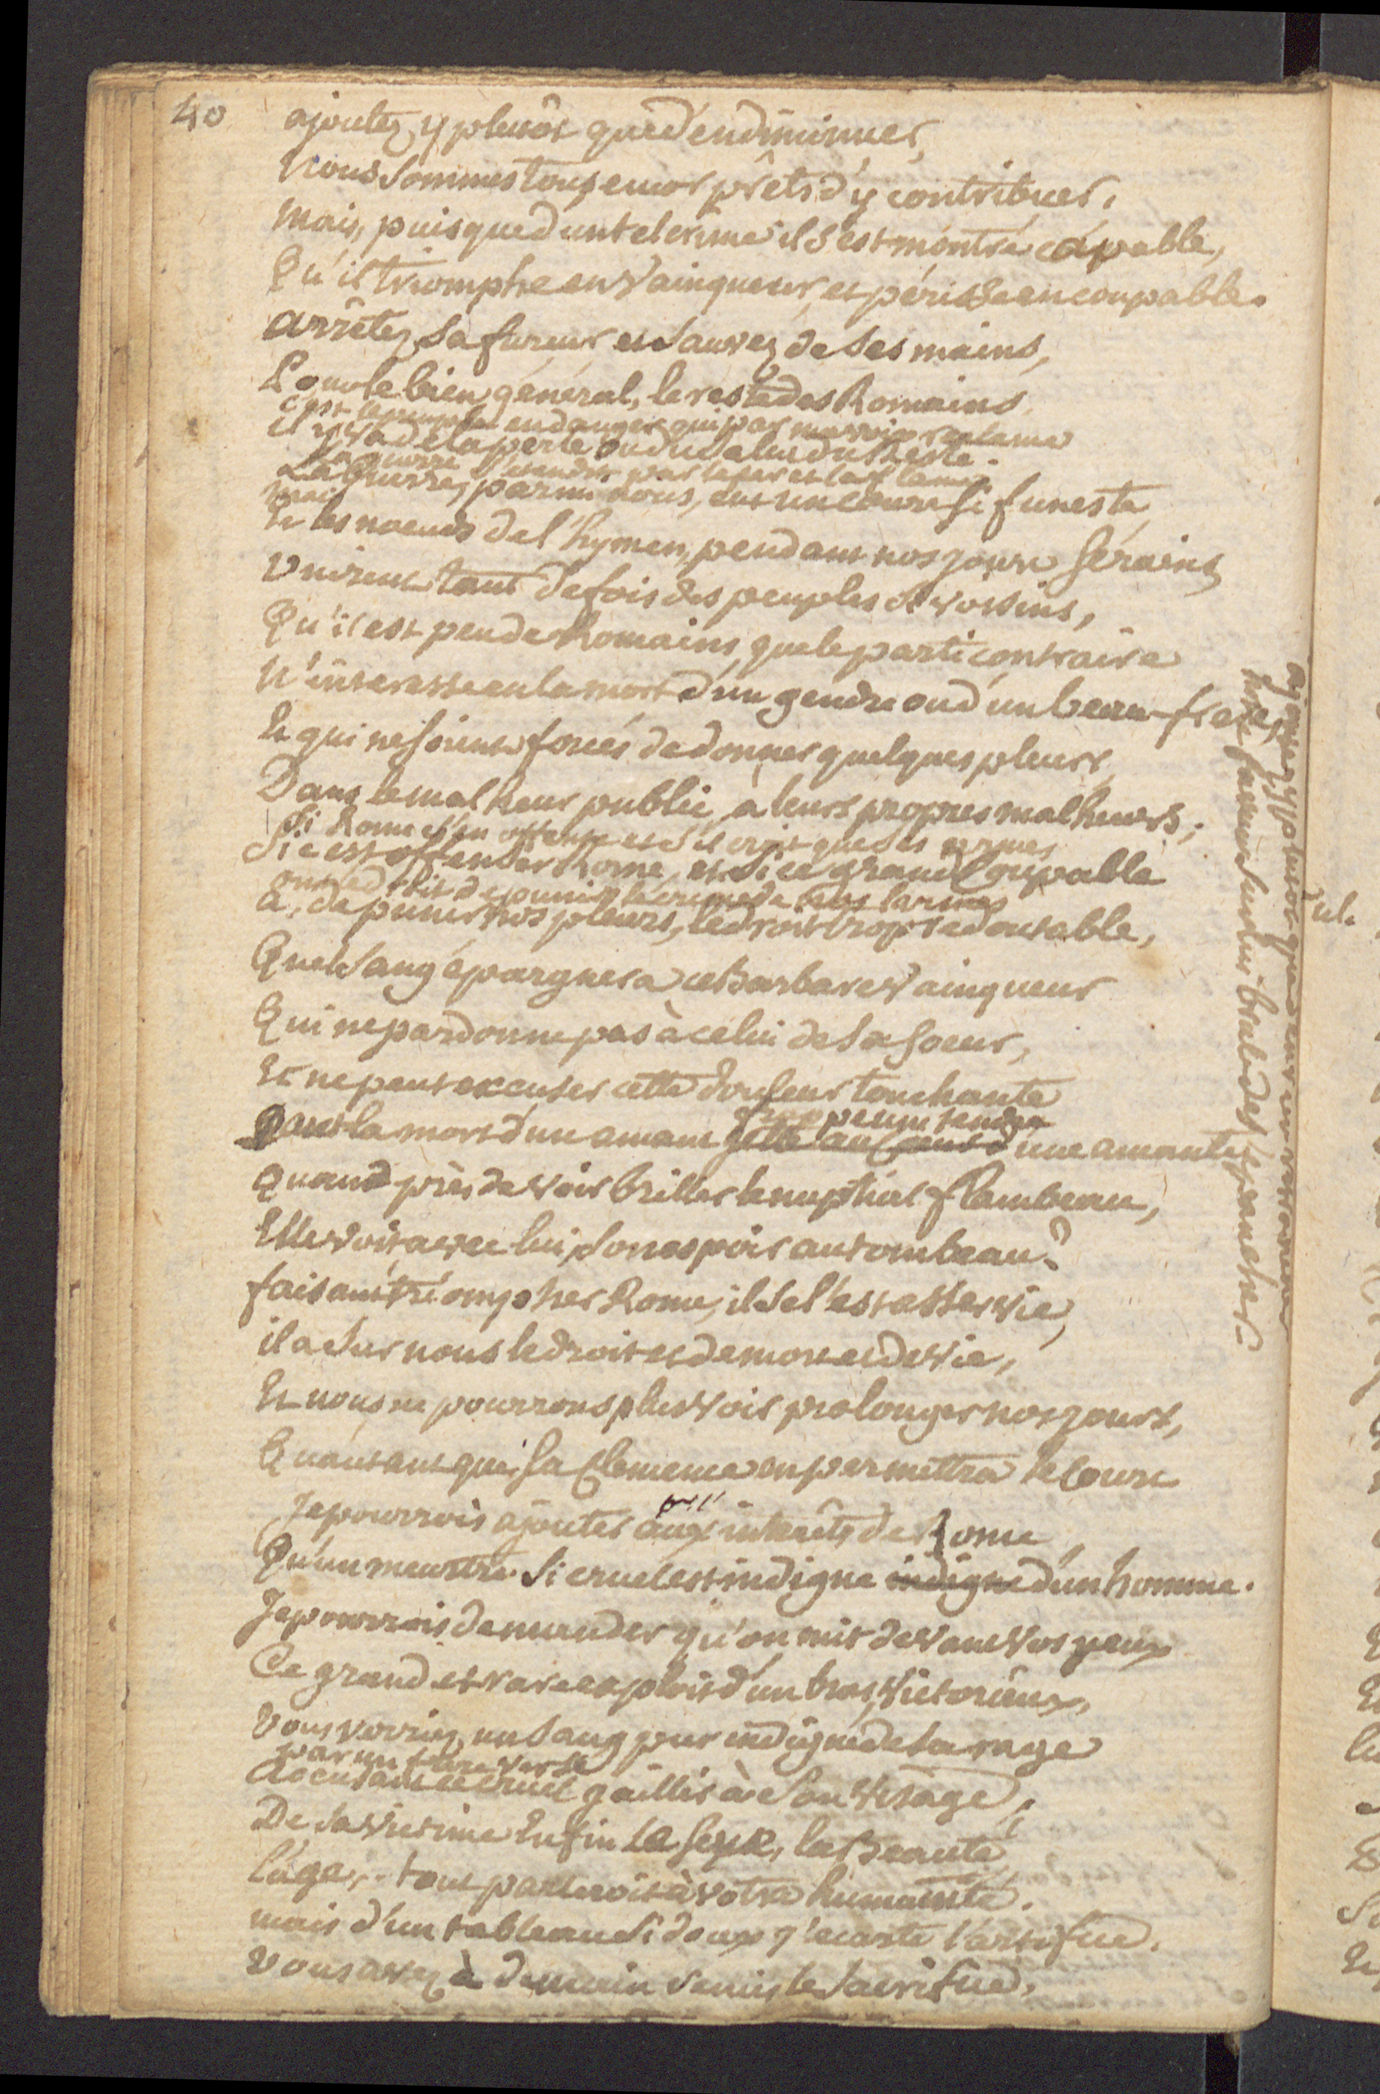 40
ajoutez y plutôt que d'en diminuer,
Nous sommes tous encor prêts d'y contribuer,
Mais, puisque d'un tel crime il s'est montré capable,
Qu'il triomphe en Vainqueur, et périsse en coupable.
arrêtez sa fureur et sauvez de ses mains,
Pour le bien général, le reste des Romains
c'est le peuple en danger qui par ma voix reclame
il y va de la perte ou du salut du reste.
La guerre s'étendit par le fer et la flamme
La Guerre, parmi nous, eut un cours si funeste,
mais
Et les noeuds de l'hymen, pendant nos jours sérains,
Unirent tant de fois des peuples si voisins,
Qu'il est peu de Romains, que le parti contraire
N'interesse en la mort d'un gendre ou d'un beau-frere,
Et qui ne soient forcés de donner quelques pleurs,
Dans le malheur public, a leurs propres malheurs,
Si Rome s'en offense et s'il croit que ses armes
Si c'est offenser Rome, et si ce grand Coupable
ont le droit de punir le crime de nos larmes
a, de punir nos pleurs, le droit trop redoutable,
Quel sang épargnera ce Barbare Vainqueur
Qui ne pardonne pas à celui de sa soeur,
Et ne peut excuser cette douleur touchante
peu tendre
Dont la mort d'un amant jette au Coeur d'une amante,
Quand près de voir briller le nuptial flambeau,
Elle voit avec lui son espoir au tombeau?
faisant triompher Rome, il se l'est asservie,
il a sur nous le droit et de mort et de vie,
Et nous ne pourrons plus voir prolonger nos jours,
Qu'autant que sa Clemence en permettra le Cours
Je pourrois ajouter aux intérêts de Rome,
Qu'un meurtre si cruel est indigne indigne d'un homme.
Je pourrois demander qu'on mit devant vos yeux
Ce grand et rare exploit d'un bras victorieux,
Vous verriez un sang pur indigné de sa rage
par un frere versé
Accusant ce cruel jaillir à son visage,
De sa victime Enfin le sexe, la Beauté,
L'age, tout parleroit à votre humanité.
mais d'un tableau si doux j'ecarte l'artifice.
Vous avez à demain remis le sacrifice,
ajoutez y plutôt que d'en